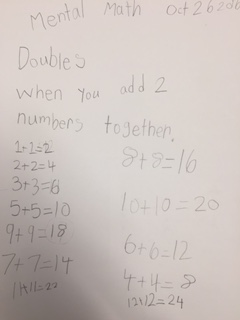 Mental Math Oct 26
Doubles
When you add 2
numbers together.
1+1=2
2+2=4
3+3=6
5+5=10
9+9=18
7+7=14
11+11=22
8+8=16
10+10=20
6+6=12
4+4=8
12+12=24